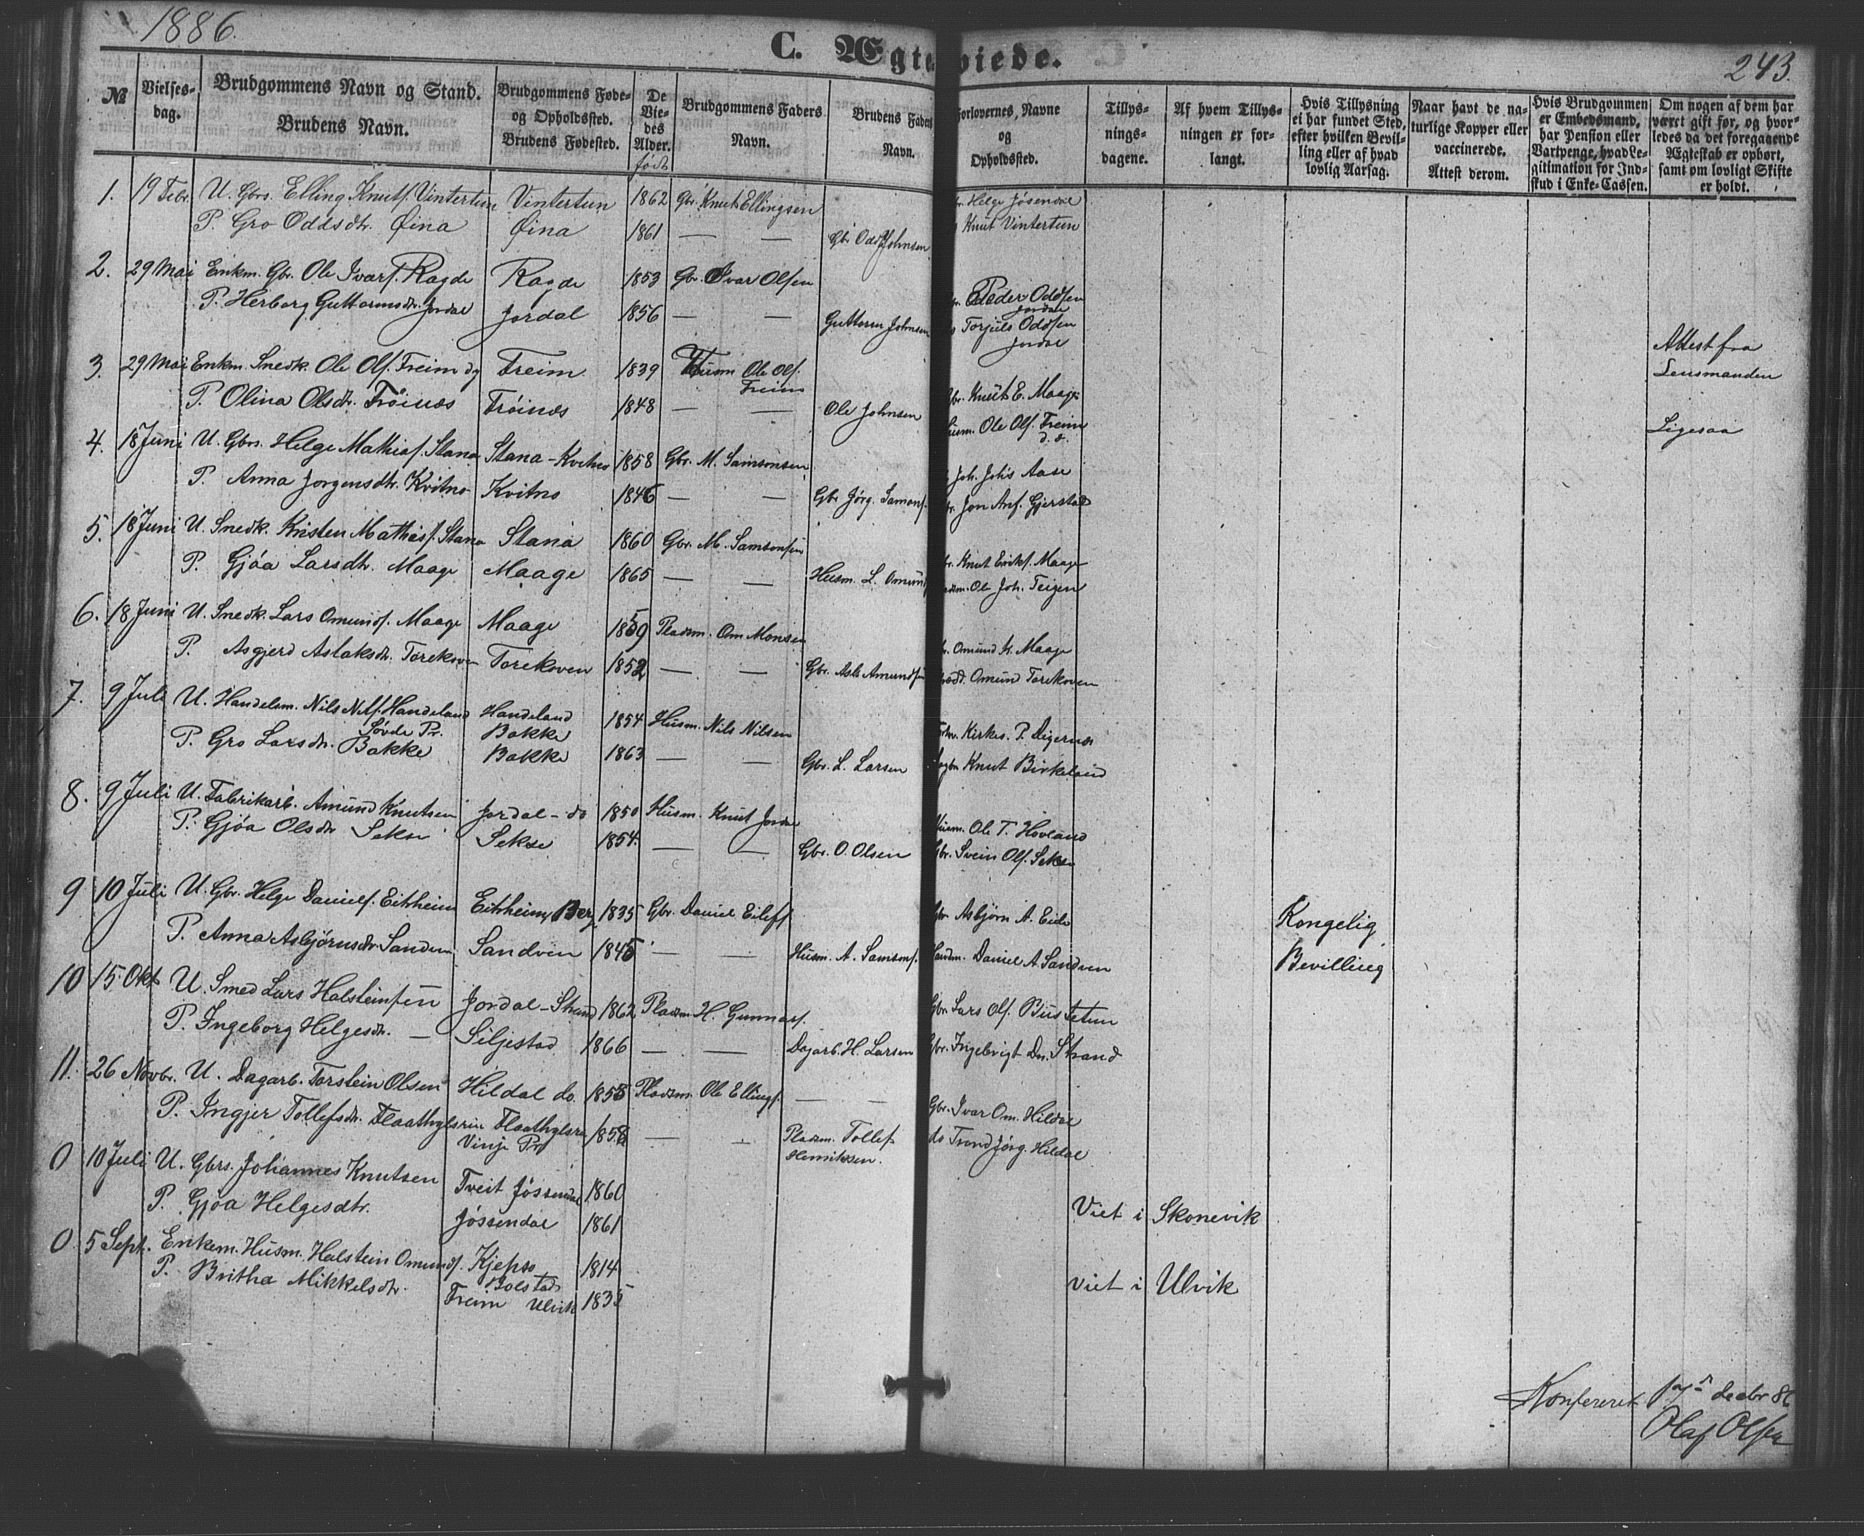 1886.
C. Ægteviede.
243.
№
Vielses-
dag.
Brudgommens Navn og Stand.
Brudens Navn.
Brudgommens Føde-
og Opholdssted.
Brudens Fødested.
De
Vie-
des
Alder.
født
Brudgommens Faders
Navn.
Brudens Faders
Navn.
Forlovernes, Navne
og
Opholdssted.
Tillys-
nings-
dagene.
Af hvem Tillys-
ningen er for-
langt.
Hvis Tillysning
ei har fundet Sted,
efter hvilken Bevil-
ling eller af hvad
lovlig Aarsag.
Naar havt de na-
turlige Kopper eller
vaccinerede.
Attest derom.
Hvis Brudgommen
er Embedsmand,
har Pension eller
Vartpenge, hvad Le-
gitimation for Ind-
skud i Enke-Cassen.
Om nogen af dem har
været gift før, og hvor-
ledes da det foregaaende
Ægteskab er ophørt,
samt om lovligt Skifte
er holdt.
1. 19 Febr. U. Gbrs. Elling Knuts. Vintertun Vintertun 1862 Gbr. Knut Ellingsen Helge Jøsendal
P. Gro Oddsdtr. Øina Øina 1861 — — Gbr Odd Johnsen Knut Vintertun
2. 29 Mai Enkm. Gbr. Ole Ivars. Ragde Ragde 1853 Gbr. Ivar Olsen Peder Oddsen Jordal
P. Herborg Guttormsdtr. Jordal Jordal 1856 — — Guttorm Johnsen Torjuls Oddsen Jordal
3. 29 Mai Enkm. Snedk. Ole Ols. Freim Freim 1839 Husm Ole Ols. Freim Knut E. Maage Attest fra Lensmanden
P. Olina Olsdtr. Tröinæs Tröinæs 1848 — — Ole Johnsen Husm. Ole Ols. Freim d. æ. Ligesaa
4. 18 Juni U. Gbrs. Helge Mathias. Stana Stana-Kvitno 1858 Gbr. M. Samsonsen Joh. Johs Aase
P. Anna Jørgensdtr. Kvitno Kvitno 1846 — — Gbr Jørg. Samons. Jon Arnf. Gjerstad
5. 18 Juni U. Snedk. Kristen Mathias. Stana Stana 1860 Gbr. M. Samsonsen Knut Eriks. Maage
P. Gjøa Larsdtr. Maage Maage 1865 — — Husm. L. Omund Ole Joh. Teigen
6. 18 Juni U. Snedk. Lars Omunds. Maage Maage 1859 Pladsm. Om Monsen Omund Maage
P. Asgjerd Aslaksdtr. Torekoven Torekoven 1852 — — Gbr. Asls Amundsen Omund Torekoven
7. 9 Juli U. Handelsm. Nils Nils. Handeland Handeland Bakke 1854 Husm. Nils Nilsen Kirkes. P. Digernes
Søvde Pr.
P. Gro Larsdtr. Bakke Bakke 1863 — — Gbr. L. Larsen Knut Birkeland
8. 9 Juli U. Fabrikarb. Amund Knutsen Jordal-do 1850 Husm. Knut Jordal Husm. Ole T. Hovland
P. Gjøa Olsdtr Sekse Sekse 1854. — — Gbr. O. Olsen Gbr. Svein Ols. Sekse
9 10 Juli U. Gbr. Helge Daniels. Eitrheim Eitrheim, Berg 1835 Gbr. Daniel Eilefs. Gbr Asbjørn A. Eide Kongelig
P. Anna Asbjørnsdtr. Sandven Sandven 1845 — — Husm. A. Samsons. Daniel A Sandven Bevilling
10 15. Okt U. Smed Lars Halsteinsen Jordal-Strand 1862 Pladsm. H. Gunnars. Gbr. Lars Ols. Bustetun
P. Ingeborg Helgesdtr. — Seljestad 1866 — — Dagarb. H. Larsen Gbr. Ingebrigt Dn. Strand
11. 26 Novbr. U. Dagarb. Torstein Olsen Hildal do. 1855 Pladsm. Ole Ellings. — — Gbr. Ivar Om. Hildal
P. Ingjer Tollefsdtr. Flaathylsrin Flaathylsrin Vinje Pr 1858 — — Pladsm. Tollef Henriksen. do Trond Jørg. Hildal
0 10 Juli U. Gbrs. Johannes Knutsen Tveit Jøssendal 1860
P. Gjøa Helgesdtr. Jøssendal 1861 Viet i Skonevik
0 5 Sept. Enkem. Husm. Halstein Omunds. Kjepso Bolstad 1814
P. Britha Mikkelsdtr. Freim Ulvik 1835 Viet i Ulvik
Konfereret decbr 86
Olaf Olsen